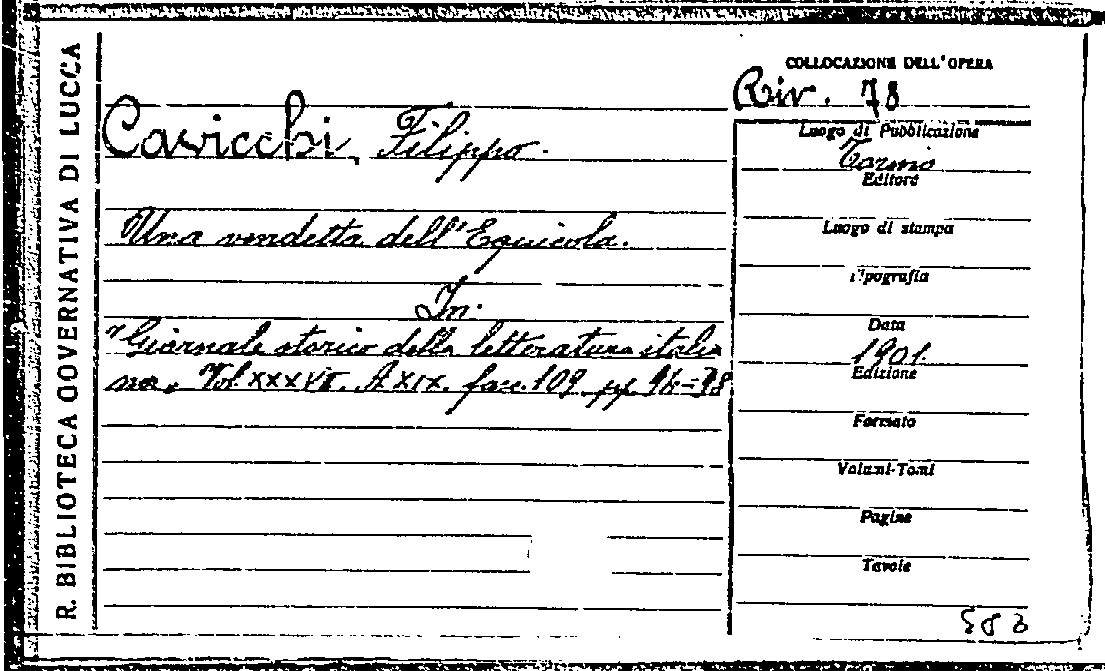 R. BIBLIOTECA GOVERNATIVA DI LUCCA
Cavicchi, Filippo.
Una vendetta dell'Equicola.
In:
"Giornale storico della letteratura italia
na". Vol. XXXVII. A XIX. fasc. 109 pp. 96=98
COLLOCAZIONE DELL'OPERA
Riv. 78
Luogo di Pubblicazione
Torino
Editore
Luogo di stampa
Tipografia
Data
1901.
Edizione
Formato
Volumi-Tomi
Pagine
Tavole